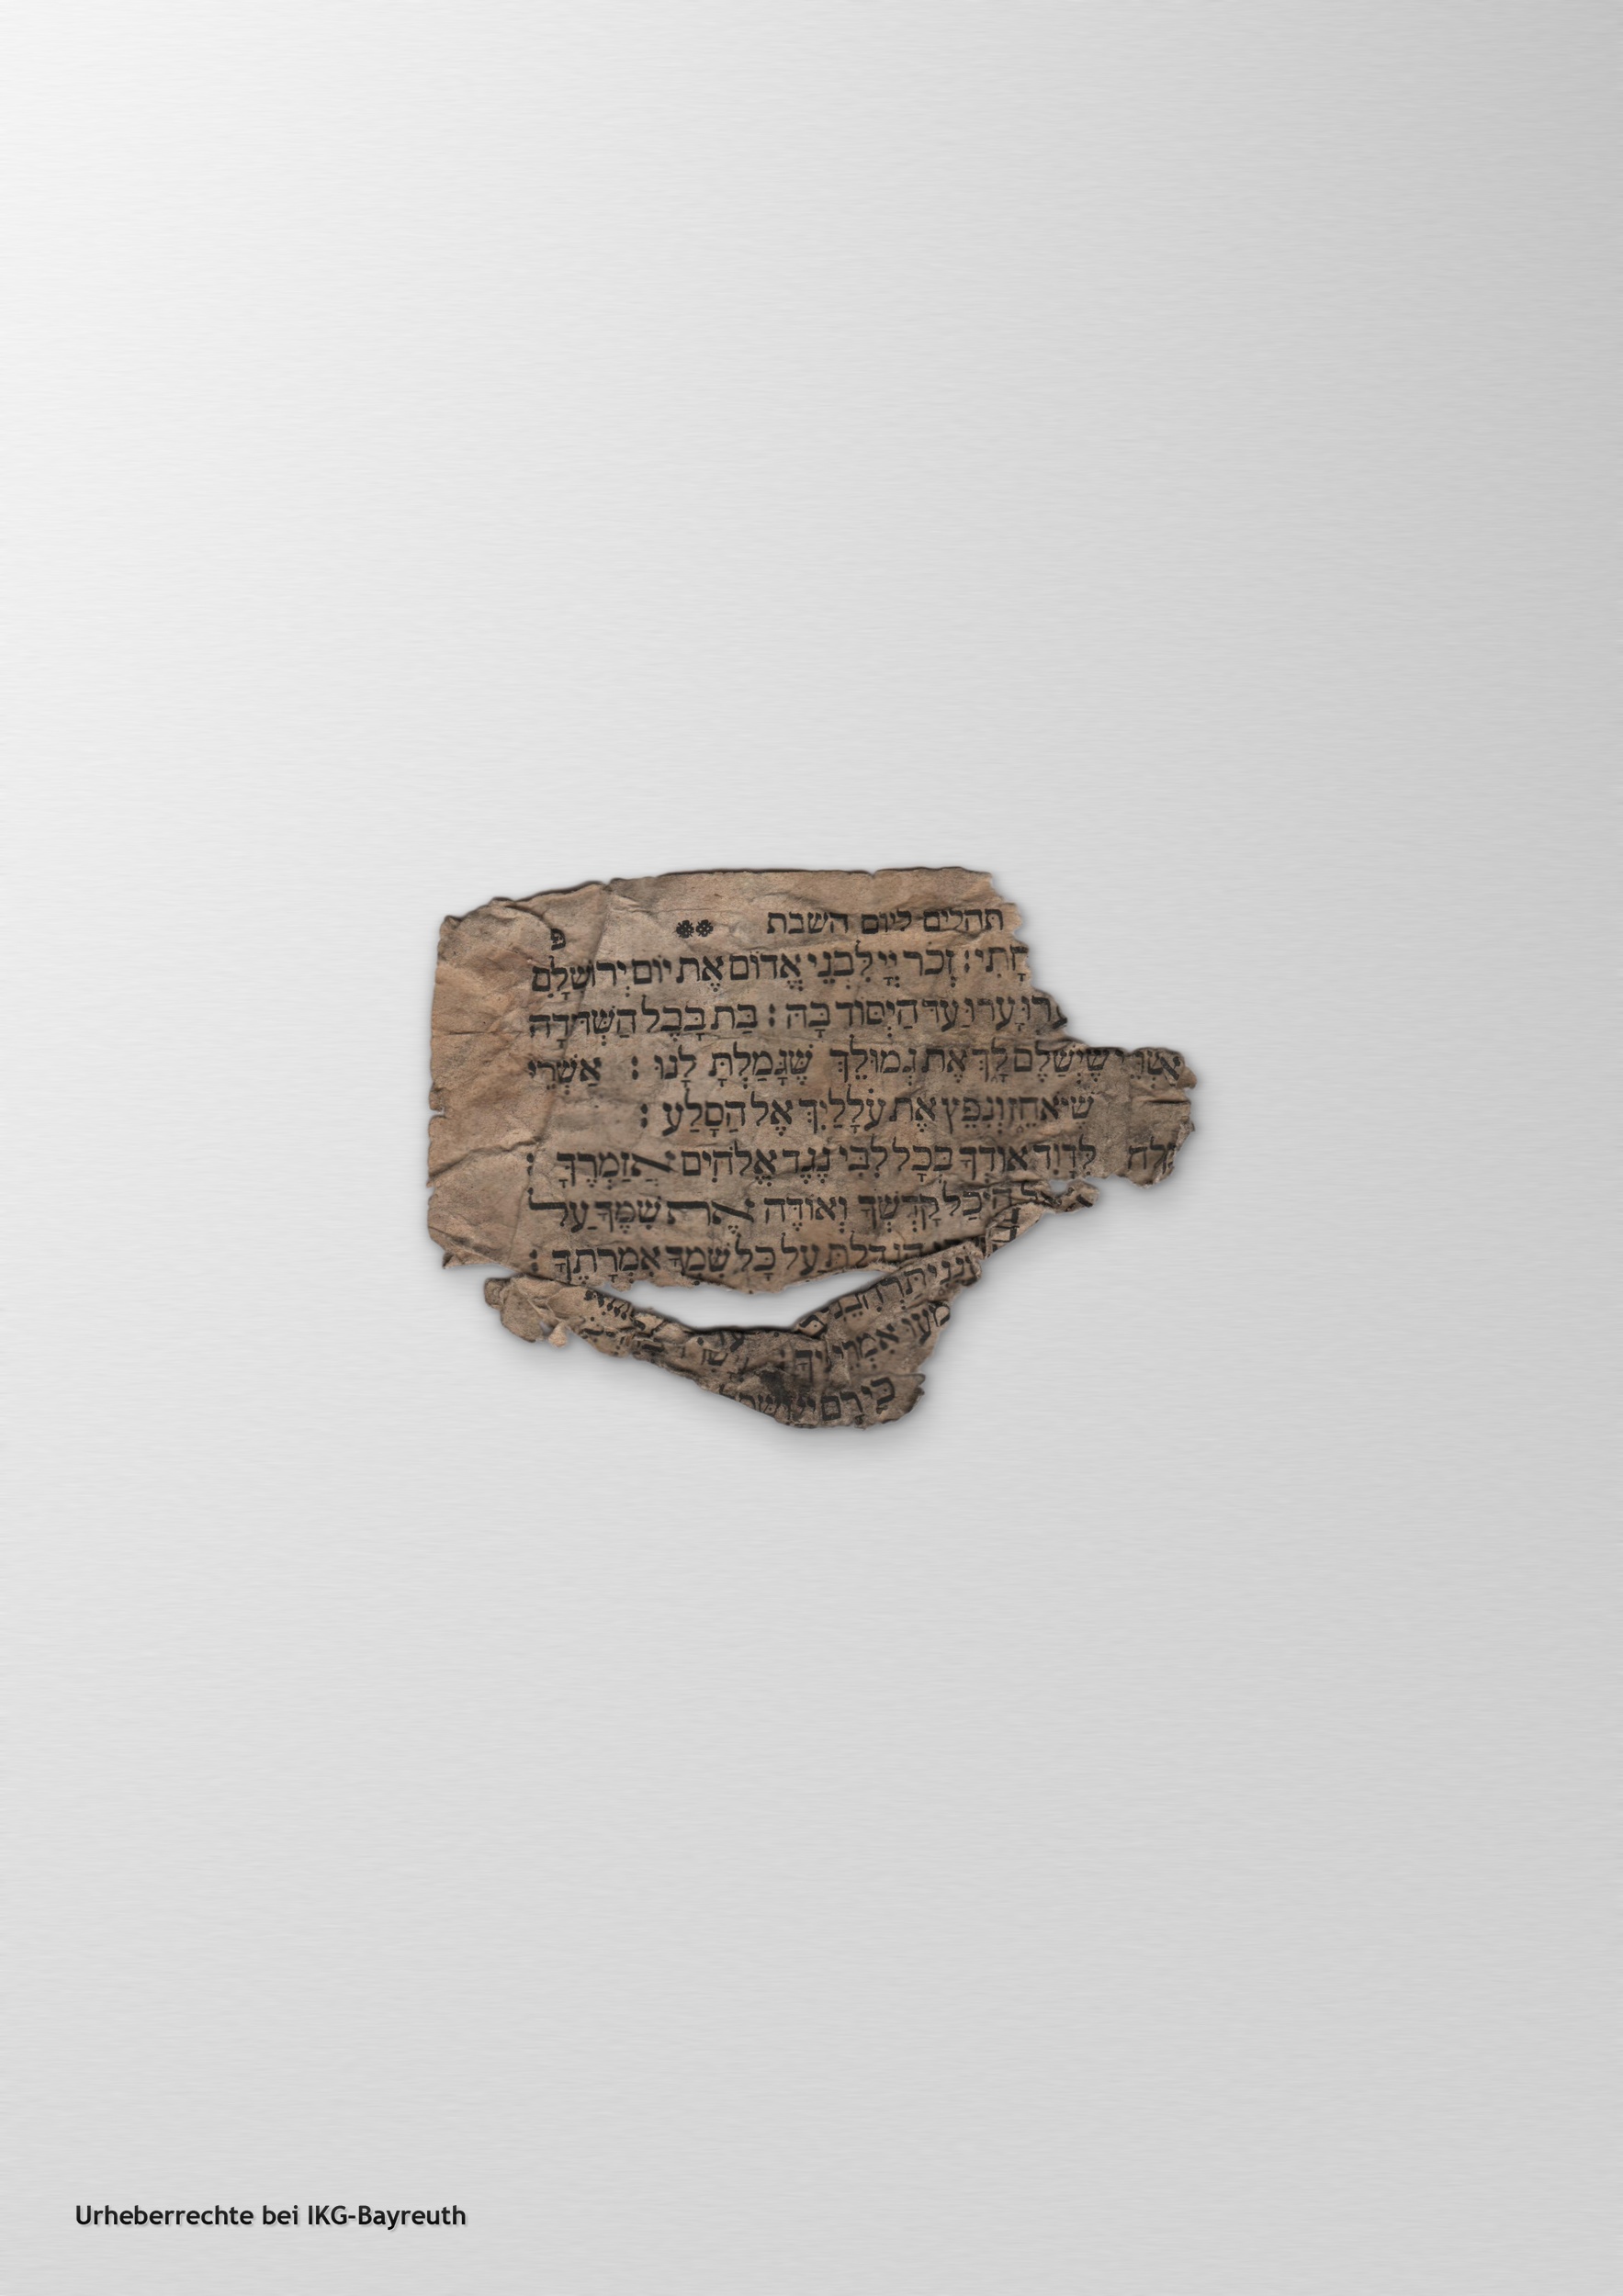 תהלים ליום השבת
פ
חָתִי: זְכֹר יְיָ לִבְנֵי אֱדוֹם אֶת יוֹם יְרוּשָׁלָםִ
עָרוּ עָרוּ עַד הַיְסוֹד בָּהּ: בַּת בָּבֶל הַשְּׁדוּדָה
אַשְׁרֵי שֶׁיְשַׁלֶּם לָךְ אֶת גְּמוּלֵךְ שֶׁגָּמַלְתְּ לָנוּ: אַשְׁרֵי
שֶׁיֹּאחֵז וְנִפֵּץ אֶת עֹלָלַיִךְ אֶל הַסָּלַע:
לְדָוִד אוֹדְךָ בְכָל לִבִּי נֶגֶד אֱלֹהִים אֲזַמְּרֶךָּ:
הֵיכַל קָדְשְׁךָ וְאוֹדֶה אֶת שְׁמֶךָ עַל
הִגְדַּלְתָּ עַל כָּל שִׁמְךָ אִמְרָתֶךָ:
אִמְרֵי
כִּי רָם יְיָ
Urheberrechte bei IKG-Bayreuth